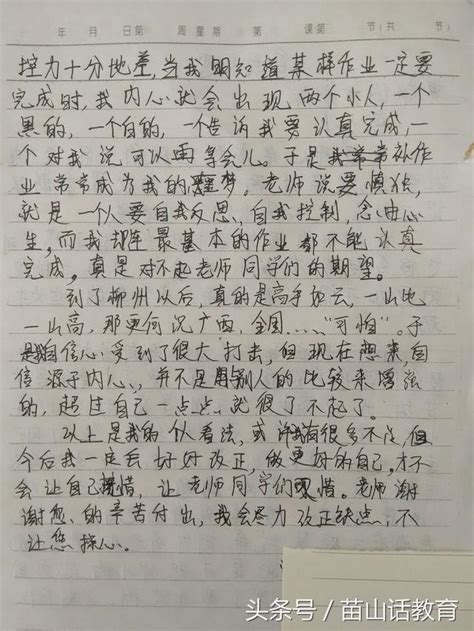 年 月 日第 周星期 第 课第 节(共 节)
控力十分地差,当我明知道某样作业一定要
完成时,我内心就会出现两个小人,一个
黑的,一个白的,一个告诉我要认真完成,一
个对我说可以再等会儿。于是我常常补作
业常常成为我的噩梦,老师说要慎独,
就是一个人要自我反思、自我控制,念由心
生,而我却连最基本的作业都不能认真
完成。真是对不起老师同学们的期望。
到了柳州以后,真的是高手如云,一山比
一山高,那更何况广西、全国……“可怕”。于
是我自信心受到了很大打击,但现在想来,自
信源于内心,并不是用别人的比较来增强
的,超过自己一点点就很了不起了。
以上是我的个人看法,或许我有很多不足,但
今后我一定会好好改正,做更好的自己,才不
会让自己惋惜,让老师同学们惋惜。老师谢
谢您的辛苦付出,我会尽力改正缺点,不
让您操心。
头条号/苗山话教育